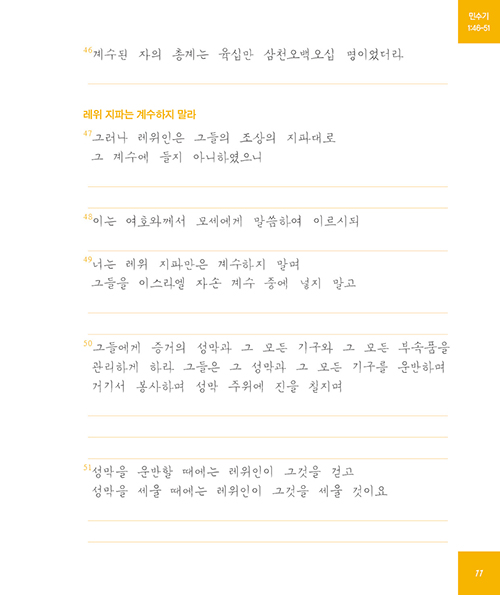 민수기
1:46-51
46계수된 자의 총계는 육십만 삼천오백오십 명이었더라
레위 지파는 계수하지 말라
47그러나 레위인은 그들의 조상의 지파대로
그 계수에 들지 아니하였으니
48이는 여호와께서 모세에게 말씀하여 이르시되
49너는 레위 지파만은 계수하지 말며
그들을 이스라엘 자손 계수 중에 넣지 말고
50그들에게 증거의 성막과 그 모든 기구와 그 모든 부속품을
관리하게 하라 그들은 그 성막과 그 모든 기구를 운반하며
거기서 봉사하며 성막 주위에 진을 칠지며
51성막을 운반할 때에는 레위인이 그것을 걷고
성막을 세울 때에는 레위인이 그것을 세울 것이요
77